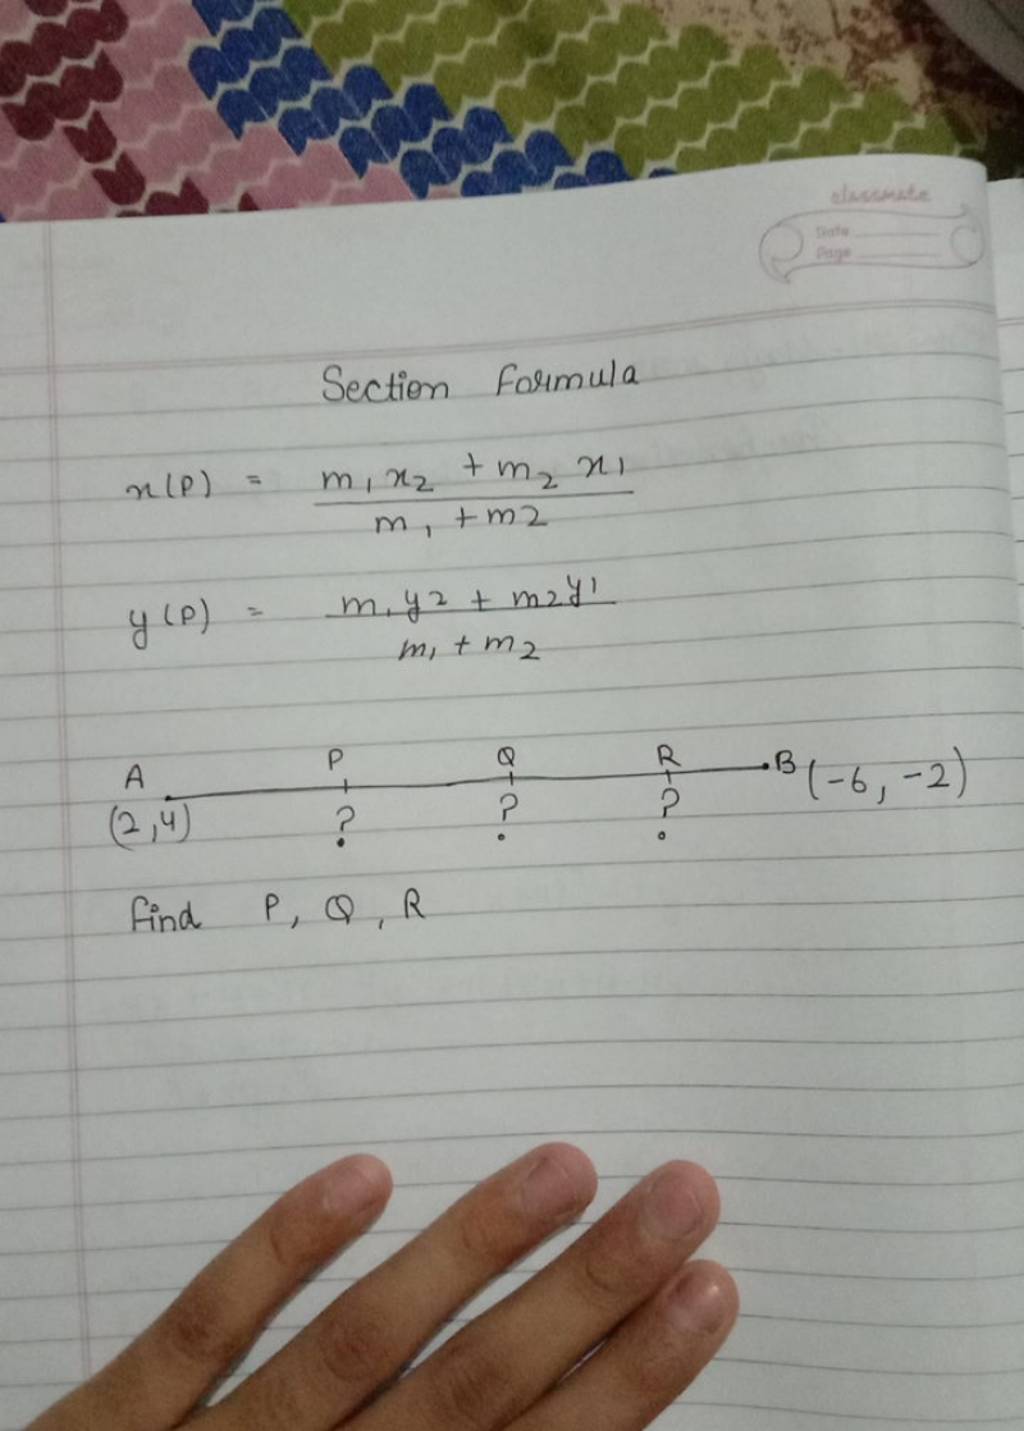 classmate
Date
Page
Section Formula
x(P) = m₁x₂ + m₂x₁
m₁ + m2
y(P) = m₁y2 + m2y1
m₁ + m₂
A P Q R B (-6, -2)
(2,4) ? ? ?
Find P, Q, R